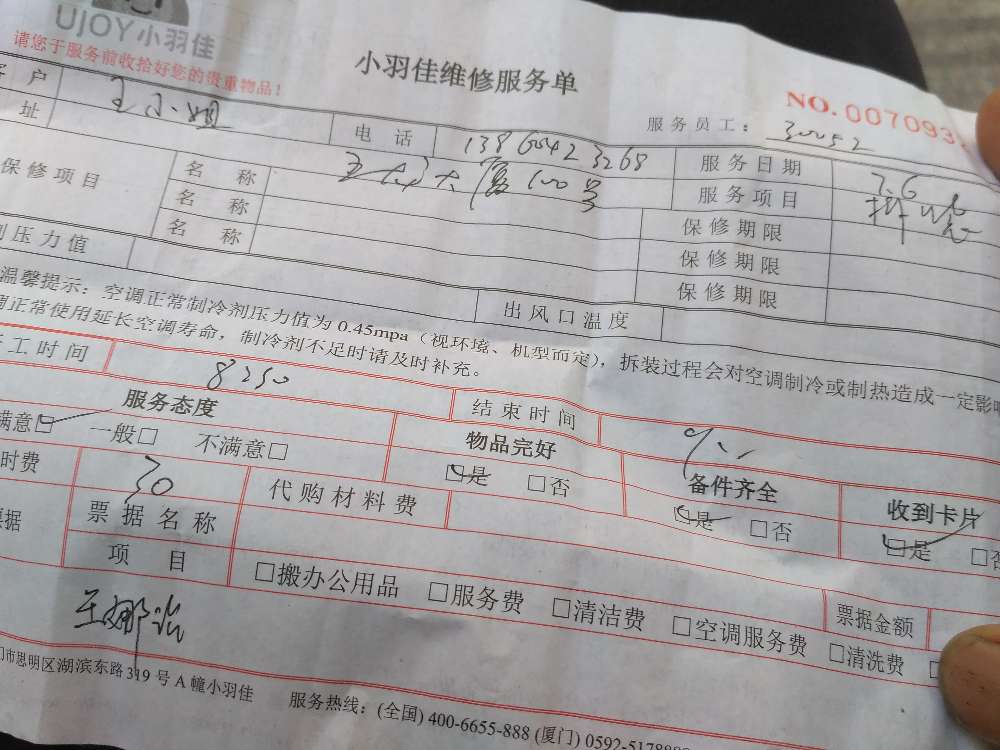 UJOY小羽佳
请您于服务前收拾好您的贵重物品!
小羽佳维修服务单
NO.007093
服务员工: 30052
户 王小姐 电话 13860423268 服务日期 7.6
址 服务项目
保修项目 名称 保修期限
名称 保修期限
名称 保修期限
压力值 出风口温度
温馨提示: 空调正常制冷剂压力值为0.45mpa (视环境、机型而定), 拆装过程会对空调制冷或制热造成一定影响
调正常使用延长空调寿命, 制冷剂不足时请及时补充。
工时间 8:50 结束时间
服务态度 物品完好 备件齐全 收到卡片
满意□ 一般□ 不满意□ □是 □否 □是 □否 □是 □否
时费 30 代购材料费
票据 票据名称
项目 □搬办公用品 □服务费 □清洁费 □空调服务费 □清洗费
票据金额
门市思明区湖滨东路319号A幢小羽佳 服务热线: (全国) 400-6655-888 (厦门) 0592-5178888